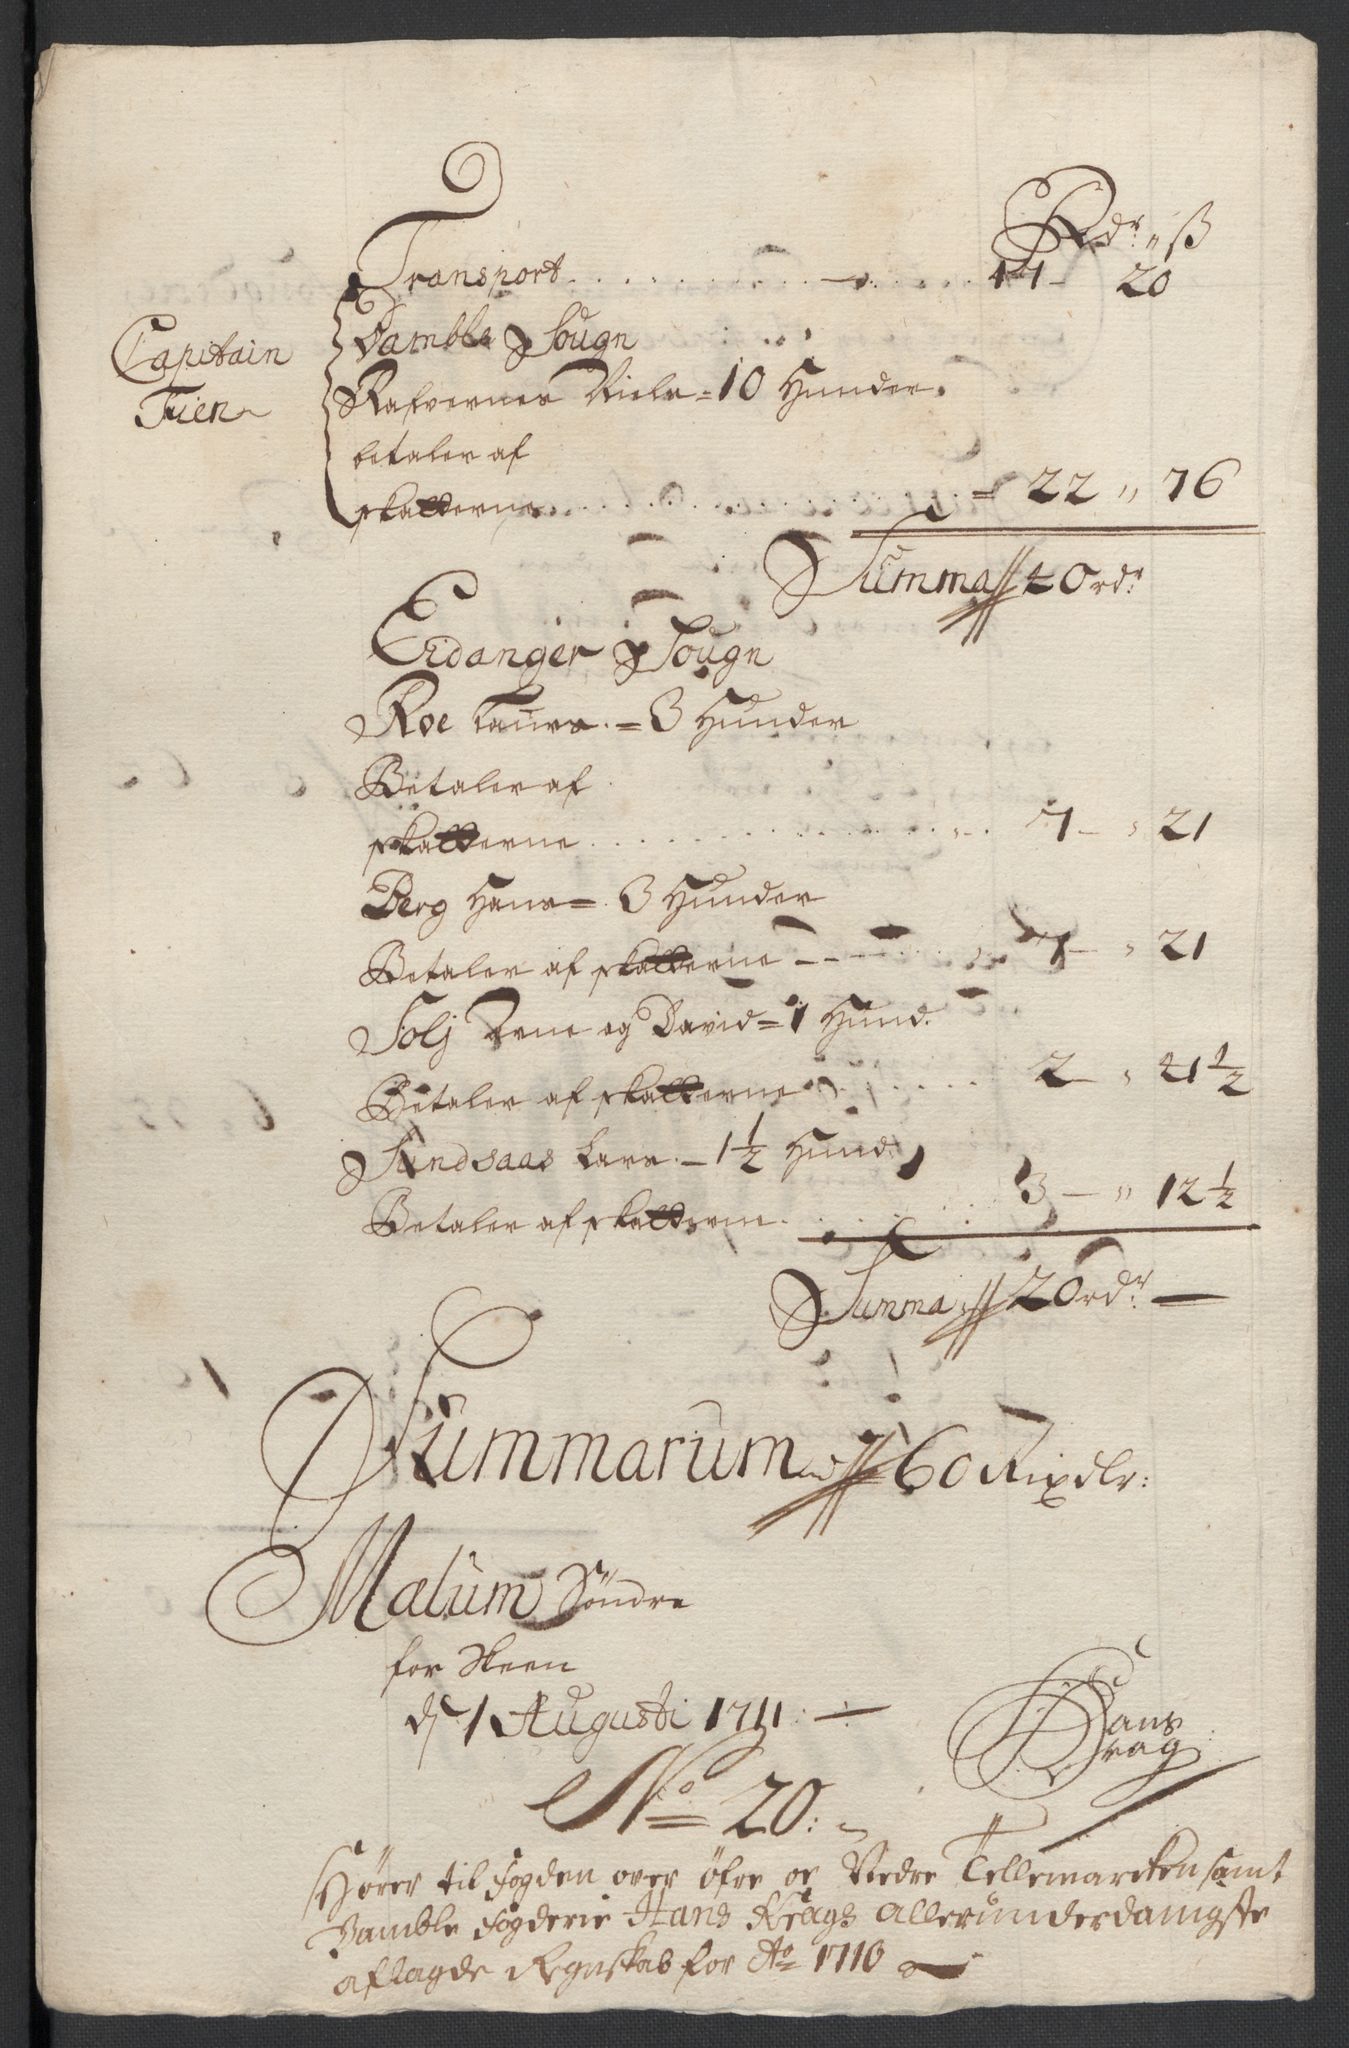 Rdr „ ß
Transport 17 – 20
Bamble Sougn
Capitain
Fien
Rafvernes Niels = 10 Hunder.
betaler af
skatterne = 22 „ 76
Summa 40 rdr
Eidanger Sougn
Roe Laurs. = 3 Hunder
Betaler af
skatterne 7 – „ 21
Berg Hans = 3 Hunder
Betaler af skatterne 7 – „ 21
Solj Arne og David = 1 Hund.
Betaler af skatterne 2 „ 41 1/2
Sundsaas Lars. – 1 1/2 Hund:
Betaler af skatterne. 3 – „ 12 1/2
Summa 20 rdr –
Summarum 60 Rixdlr:
Mælum Söndre
for Skeen
d 1 Augusti 1711. –
Hans
Krag
No 20:
Hører til fogden over öfre oc Nedre Tellemarcken samt
Bamble fogderie Hans Krags allerunderdanigste
aflagde Regnskab for Ao 1710